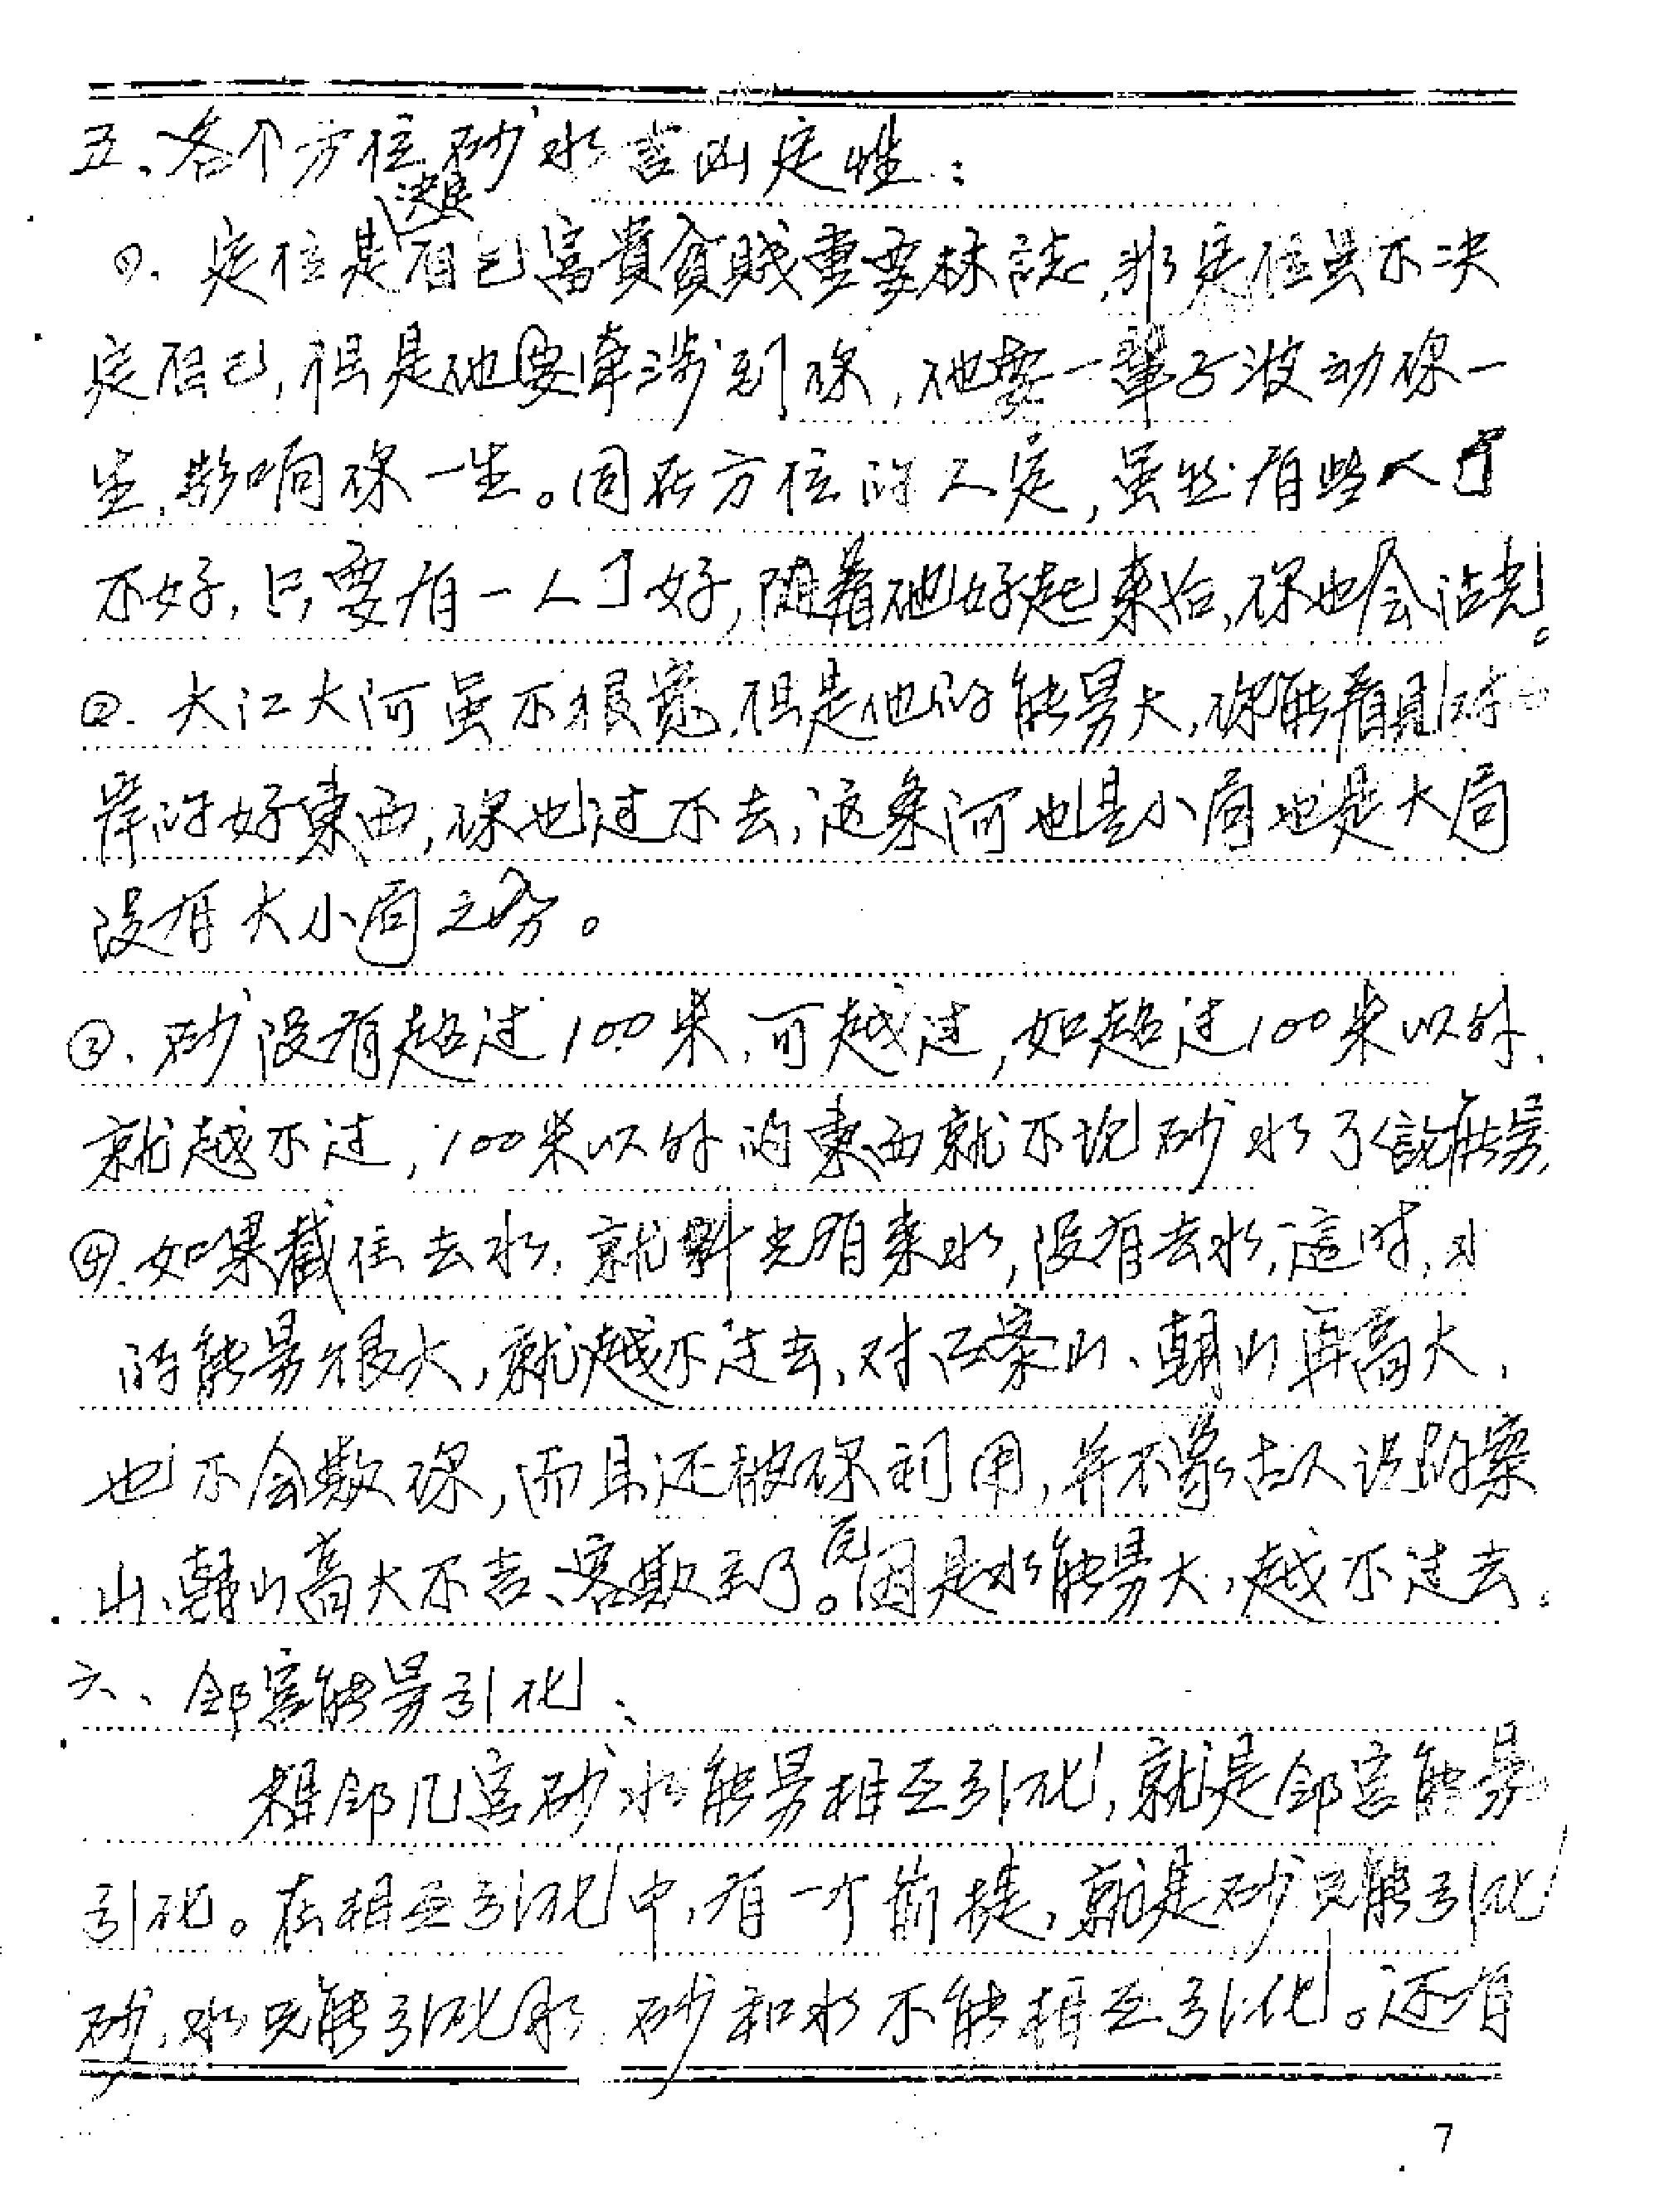 五、各个方位砂水吉凶定性：
①. 定位是决定自己富貴貧賤重要标誌，非定位虽不决
定自己，但是他要牵涉到你，他要一輩子波动你一
生，影响你一生。同在方位的人定，虽然有些人丁
不好，只要有一人丁好，随着他好起来后，你也会沾光。
②. 大江大河虽不很宽，但是他的能量大，你能看見对
岸的好東西，你也过不去，这条河也是小局也是大局
没有大小局之分。
③. 砂没有超过100米，可越过，如超过100米以外，
就越不过，100米以外的東西就不说砂水了説能量，
④. 如果截住去水，就光有来水，没有去水，這时，水
的能量很大，就越不过去，对面案山、朝山再高大，
也不会欺你，而且还被你利用，并不象古人说的案
山、朝山高大不吉、客欺主了。原因是水能量大，越不过去。
六、邻宫能量引化、
相邻几宫砂水能量相互引化，就是邻宫能量
引化。在相互引化中，有一个前提，就是砂只能引化
砂，水只能引化水，砂和水不能相互引化。还有
7